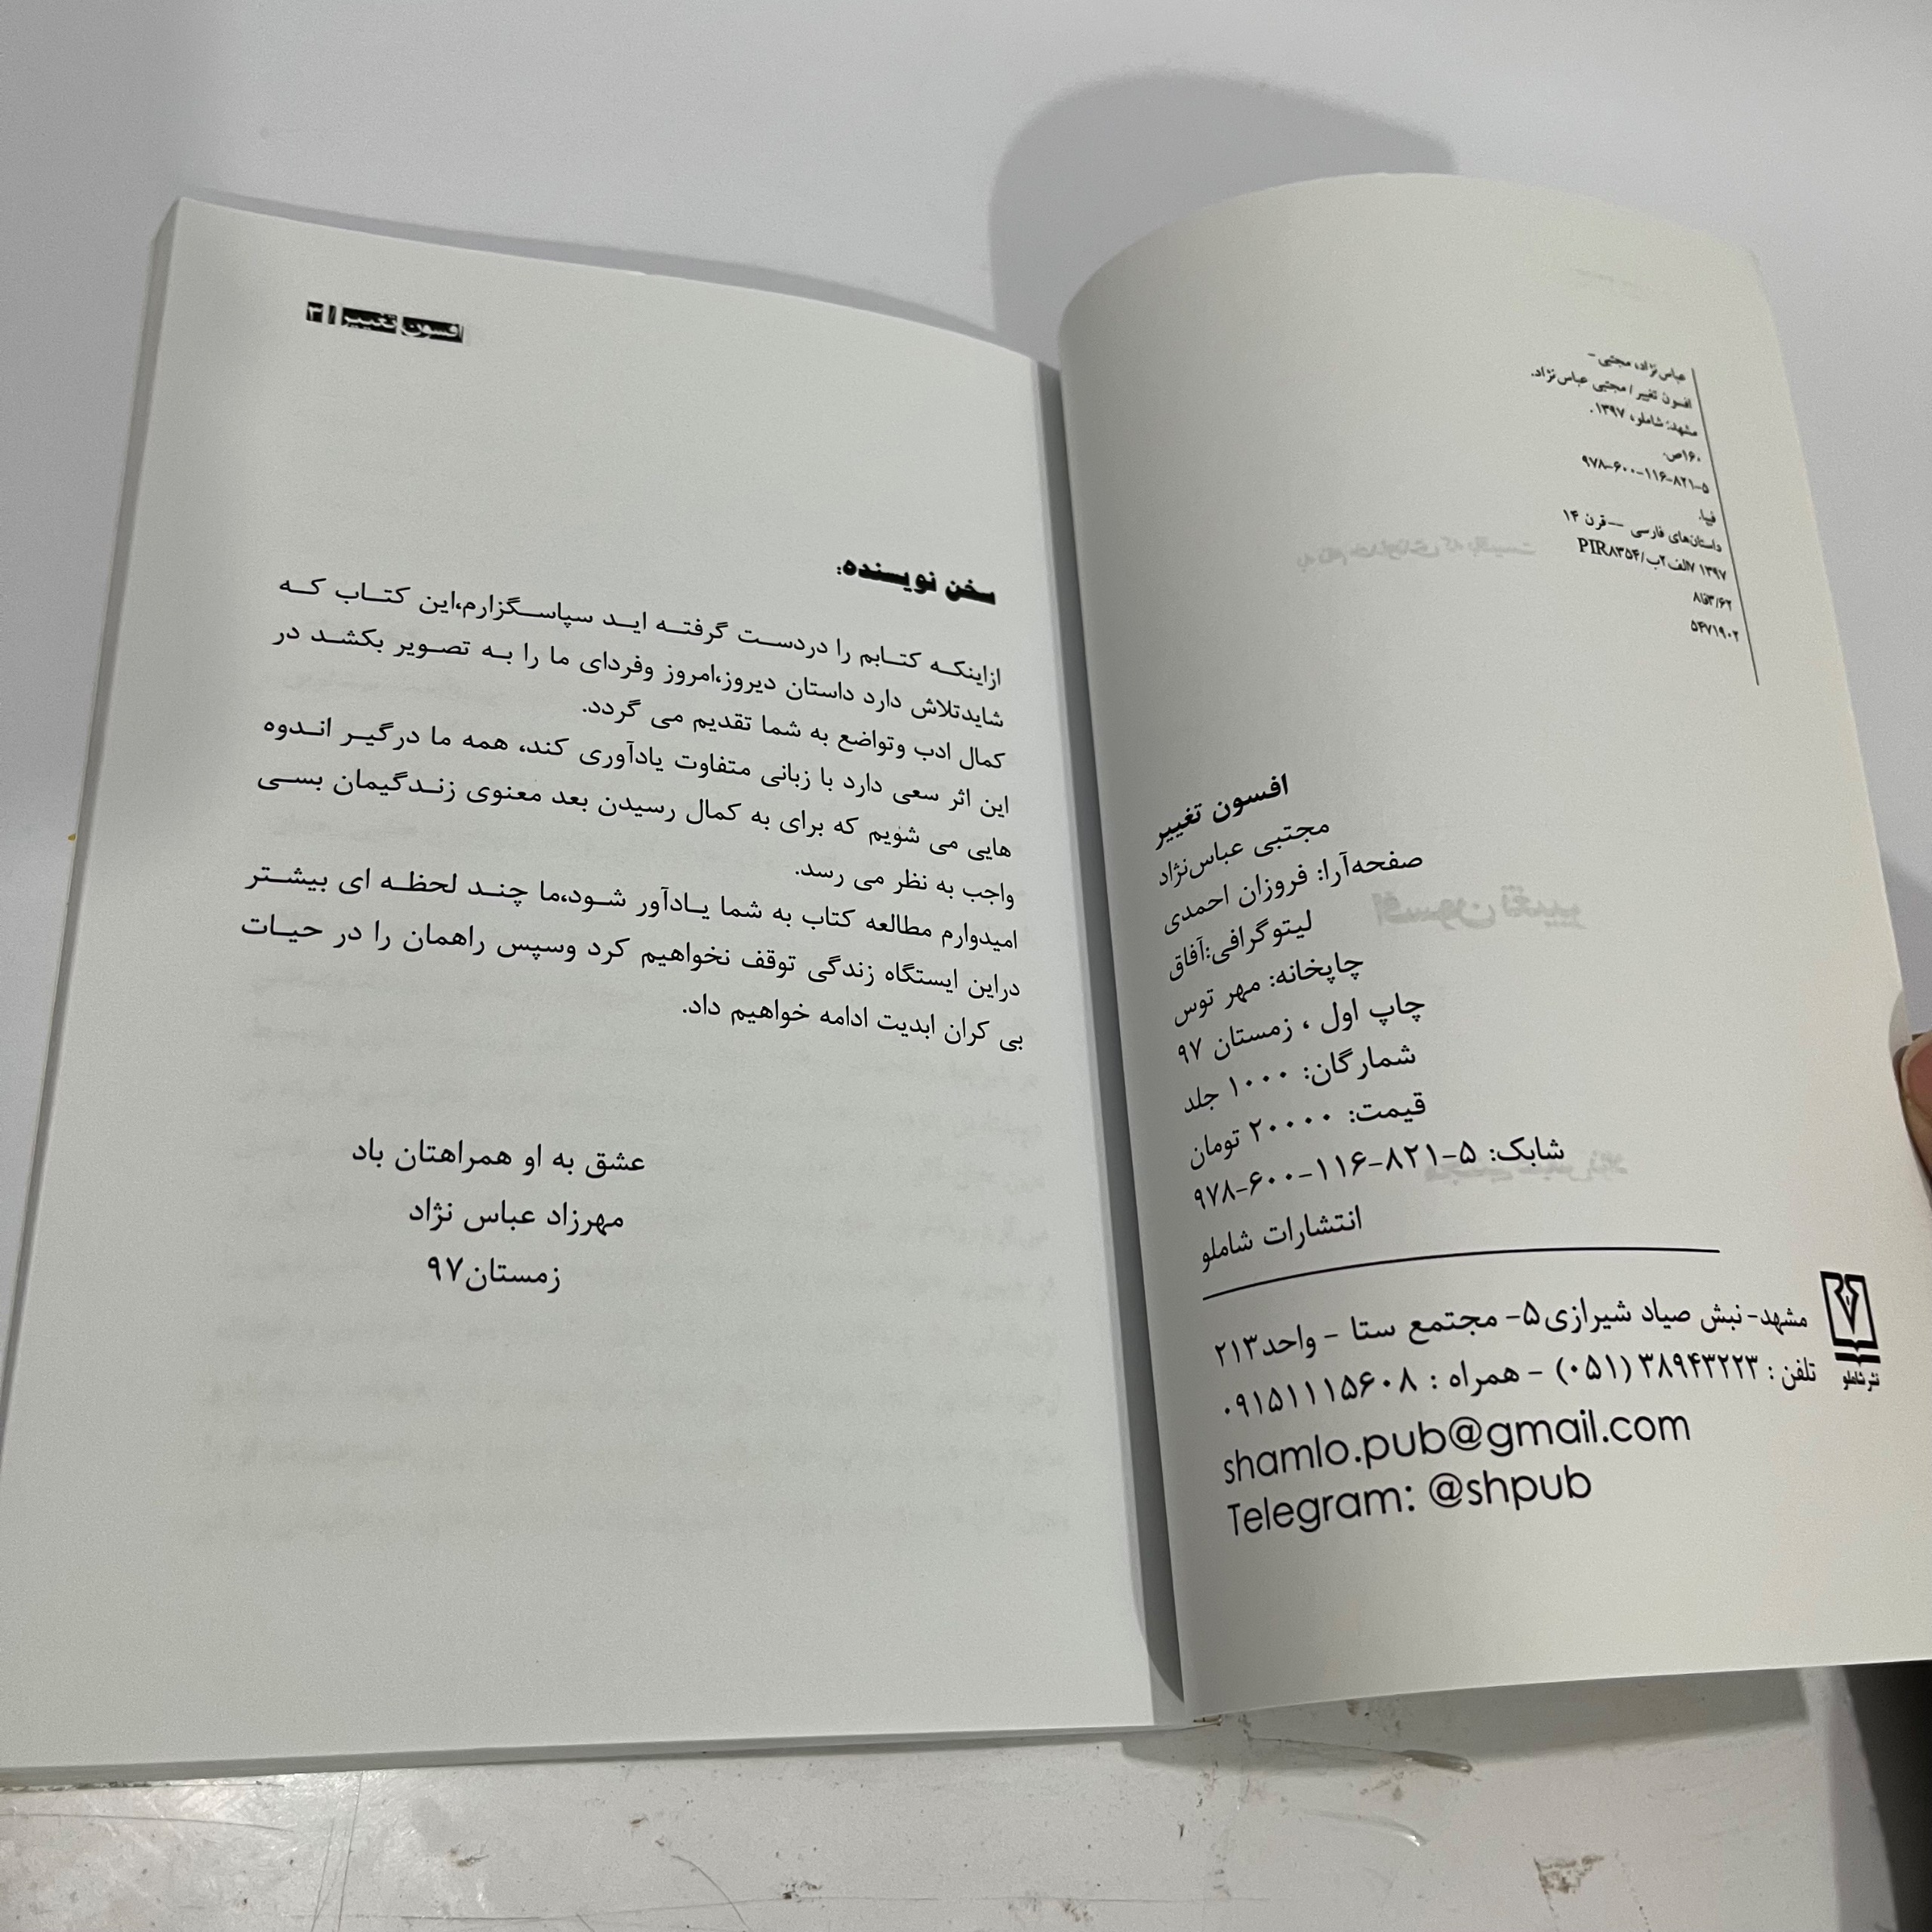 عباس‌نژاد، مجتبی-
افسون تغییر/ مجتبی عباس‌نژاد.
مشهد: شاملو، ۱۳۹۷.
۱۶۰ص.
۹۷۸-۶۰۰-۱۱۶-۸۲۱-۵
فیپا.
داستان‌های فارسی -- قرن ۱۴
۱۳۹۷ ۷الف۲ب/PIR۸۳۵۴
۸فا۳/۶۲
۵۴۷۱۹۰۲
افسون تغییر
مجتبی عباس‌نژاد
صفحه‌آرا: فروزان احمدی
لیتوگرافی:آفاق
چاپخانه: مهر توس
چاپ اول ، زمستان ۹۷
شمارگان: ۱۰۰۰ جلد
قیمت: ۲۰۰۰۰ تومان
شابک: ۵-۸۲۱-۱۱۶-۶۰۰-۹۷۸
انتشارات شاملو
مشهد- نبش صیاد شیرازی۵- مجتمع ستا - واحد۲۱۳
تلفن : ۳۸۹۴۳۲۲۳ (۰۵۱) - همراه : ۰۹۱۵۱۱۱۵۶۰۸
نشر شاملو
shamlo.pub@gmail.com
Telegram: @shpub
افسون تغییر / ۳
سخن نویسنده:
ازاینکه کتابم را دردست گرفته اید سپاسگزارم،این کتاب که
شایدتلاش دارد داستان دیروز،امروز وفردای ما را به تصویر بکشد در
کمال ادب وتواضع به شما تقدیم می گردد.
این اثر سعی دارد با زبانی متفاوت یادآوری کند، همه ما درگیر اندوه
هایی می شویم که برای به کمال رسیدن بعد معنوی زندگیمان بسی
واجب به نظر می رسد.
امیدوارم مطالعه کتاب به شما یادآور شود،ما چند لحظه ای بیشتر
دراین ایستگاه زندگی توقف نخواهیم کرد وسپس راهمان را در حیات
بی کران ابدیت ادامه خواهیم داد.
عشق به او همراهتان باد
مهرزاد عباس نژاد
زمستان۹۷